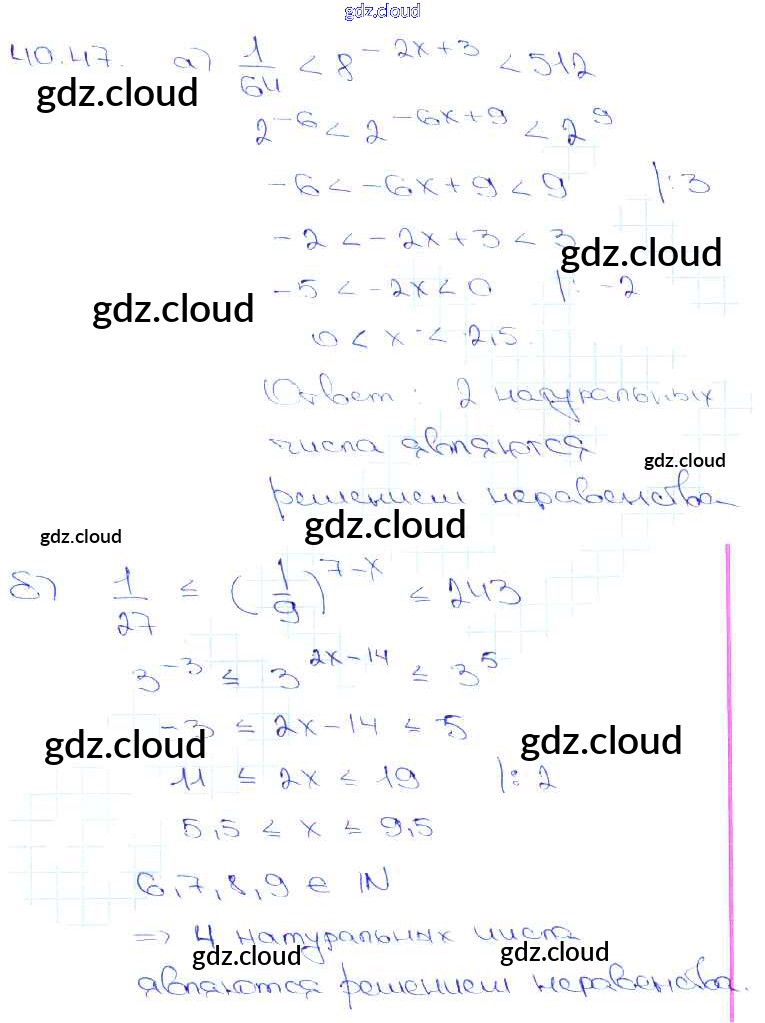 gdz.cloud
40.47. а) 1/64 < 8^(-2x+3) < 512
gdz.cloud
2^(-6) < 2^(-6x+9) < 2^9
-6 < -6x+9 < 9 |:3
-2 < -2x+3 < 3
gdz.cloud
-5 < -2x < 0 |: -2
gdz.cloud
0 < x < 2,5.
Ответ: 2 натуральных
числа являются
gdz.cloud
решением неравенства
gdz.cloud
gdz.cloud
б) 1/27 ≤ (1/9)^(7-x) ≤ 243
3^(-3) ≤ 3^(2x-14) ≤ 3^5
-3 ≤ 2x-14 ≤ 5
gdz.cloud
gdz.cloud
11 ≤ 2x ≤ 19 |: 2
5,5 ≤ x ≤ 9,5
6,7,8,9 ∈ N
=> 4 натуральных числа
gdz.cloud
gdz.cloud
являются решением неравенства.